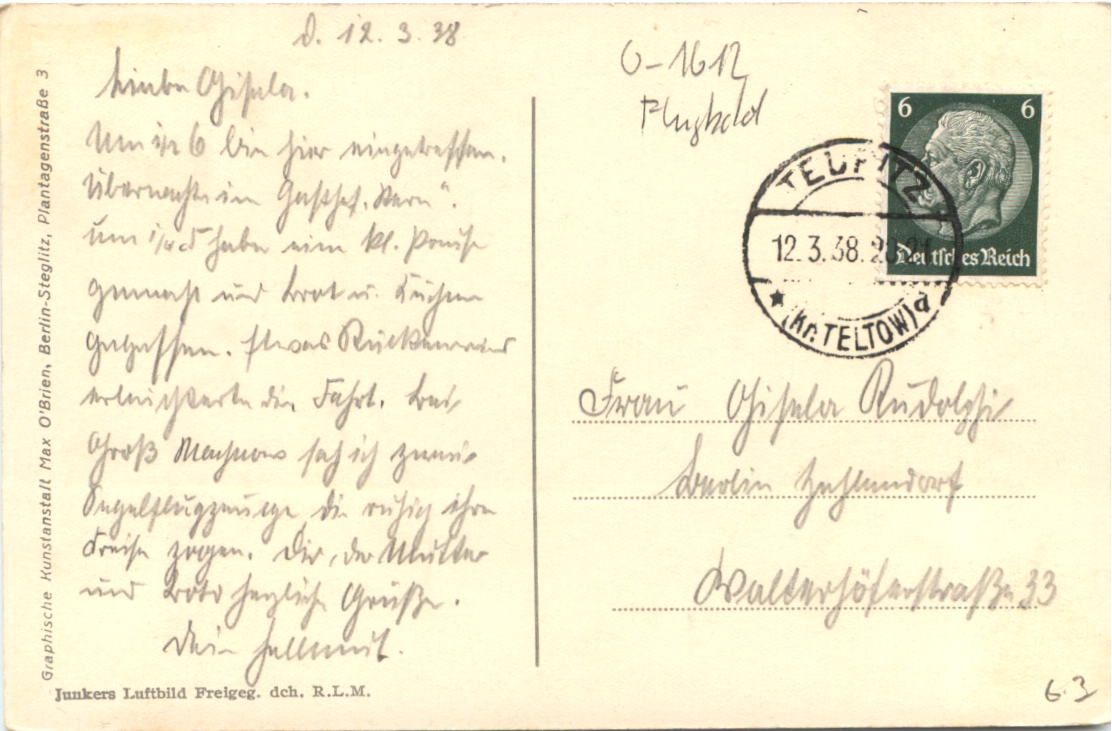 d. 12. 3. 38
Liebe Gisela.
Um 1/2 6 bin hier eingetroffen.
Übernachte im Gasthof „Stern“.
Um 1/4 5 habe eine kl. Pause
gemacht und Brot u. Kuchen
gegessen. Etwas Rückenwind
erleichterte die Fahrt. Bei
Groß Machnow sah ich zwei
Segelflugzeuge, die ruhig ihre
Kreise zogen. Dir, der Mutter
und herzliche Grüße.
Dein Hellmut.
Graphische Kunstanstalt Max O'Brien, Berlin-Steglitz, Plantagenstraße 3
Junkers Luftbild Freigeg. dch. R.L.M.
6-1612
6 6
Deutsches Reich
TEUPITZ
12.3.38.20-21
★ (Kr. TELTOW) a
Frau Gisela Rudolphi
Berlin Zehlendorf
Walterhöferstraße 33
6.3